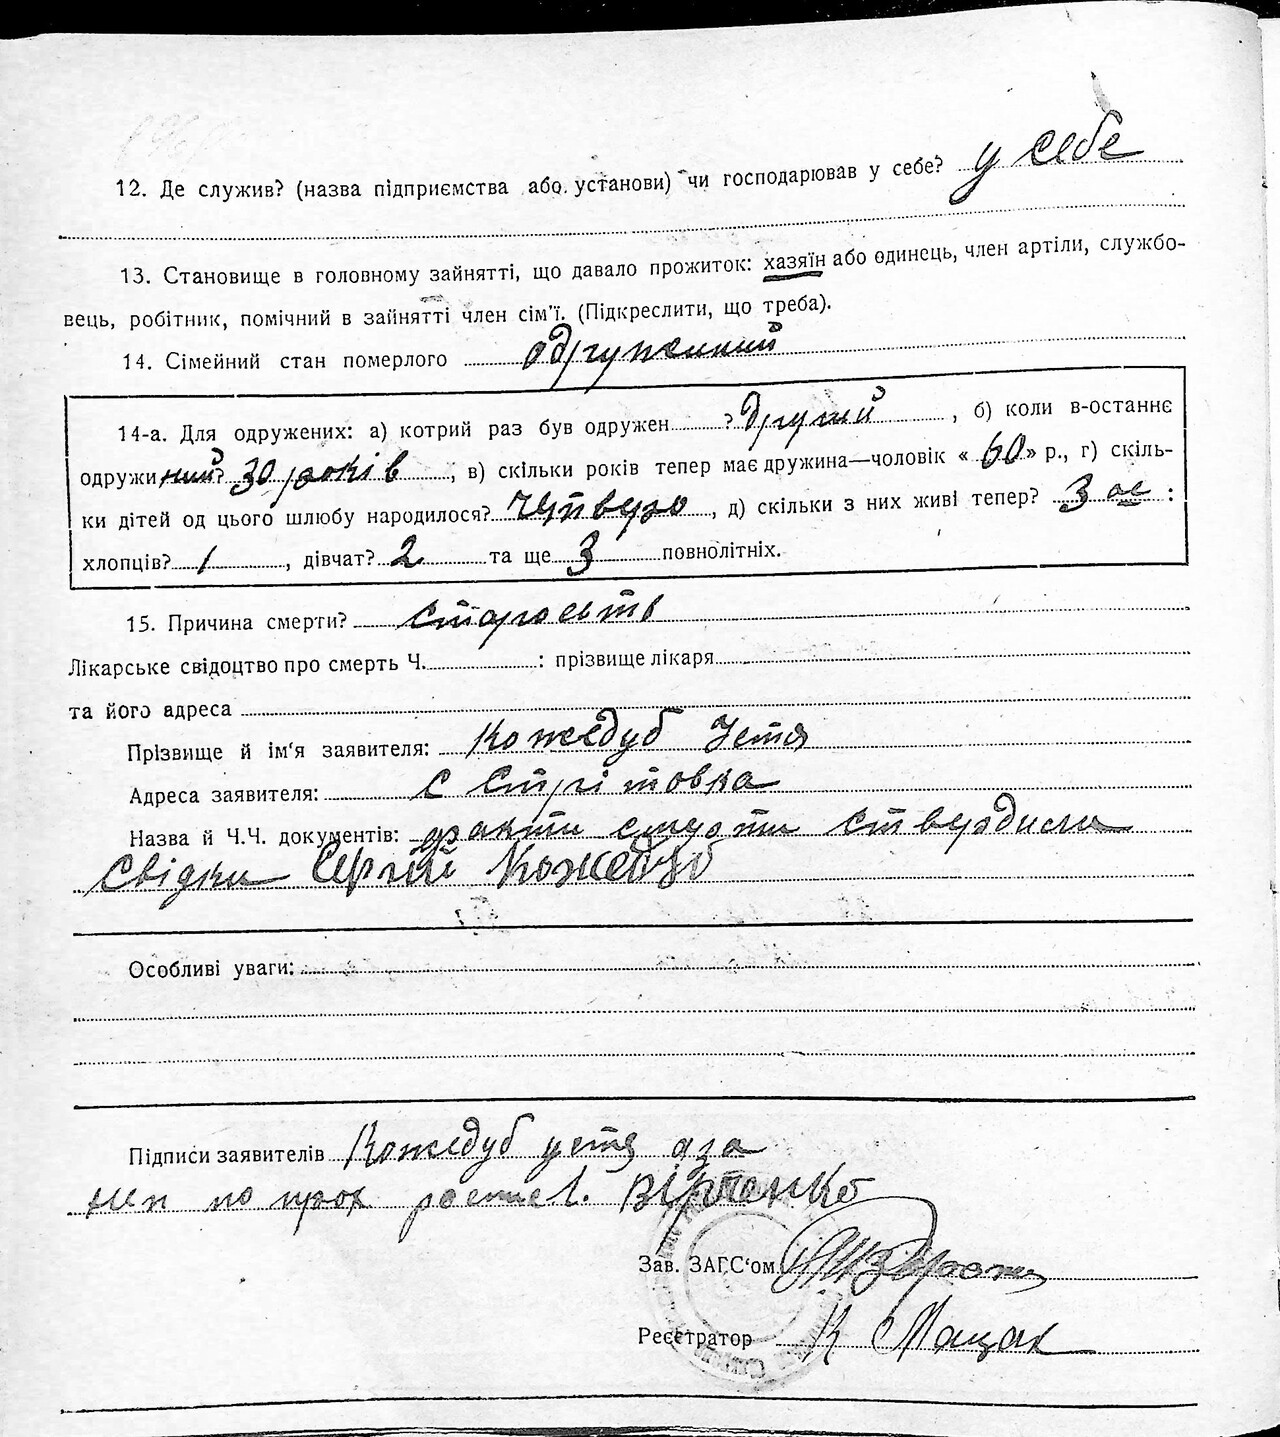 12. Де служив? (назва підприємства або установи) чи господарював у себе? у себе
13. Становище в головному зайнятті, що давало прожиток: хазяїн або одинець, член артілі, службо-
вець, робітник, помічний в зайнятті член сім'ї. (Підкреслити, що треба).
14. Сімейний стан померлого одружений
14-а. Для одружених: а) котрий раз був одружен ? другий , б) коли в-останнє
одружи ний? 30 років , в) скільки років тепер має дружина—чоловік « 60 » р., г) скіль-
ки дітей од цього шлюбу народилося? , д) скільки з них живі тепер? 3 :
хлопців? 1 , дівчат? 2 та ще 3 повнолітніх.
15. Причина смерти? старость
Лікарське свідоцтво про смерть Ч. : прізвище лікаря
та його адреса
Прізвище й ім'я заявителя: Кожедуб Устя
Адреса заявителя: с Стрітовка
Назва й Ч.Ч. документів: факти смерти ствердили
Свідки Сергій Кожедуб
Особливі уваги:
Підписи заявителів Кожедуб устя а за
неї по прох роспис.
Зав. ЗАГС'ом
Реєстратор К Мацак